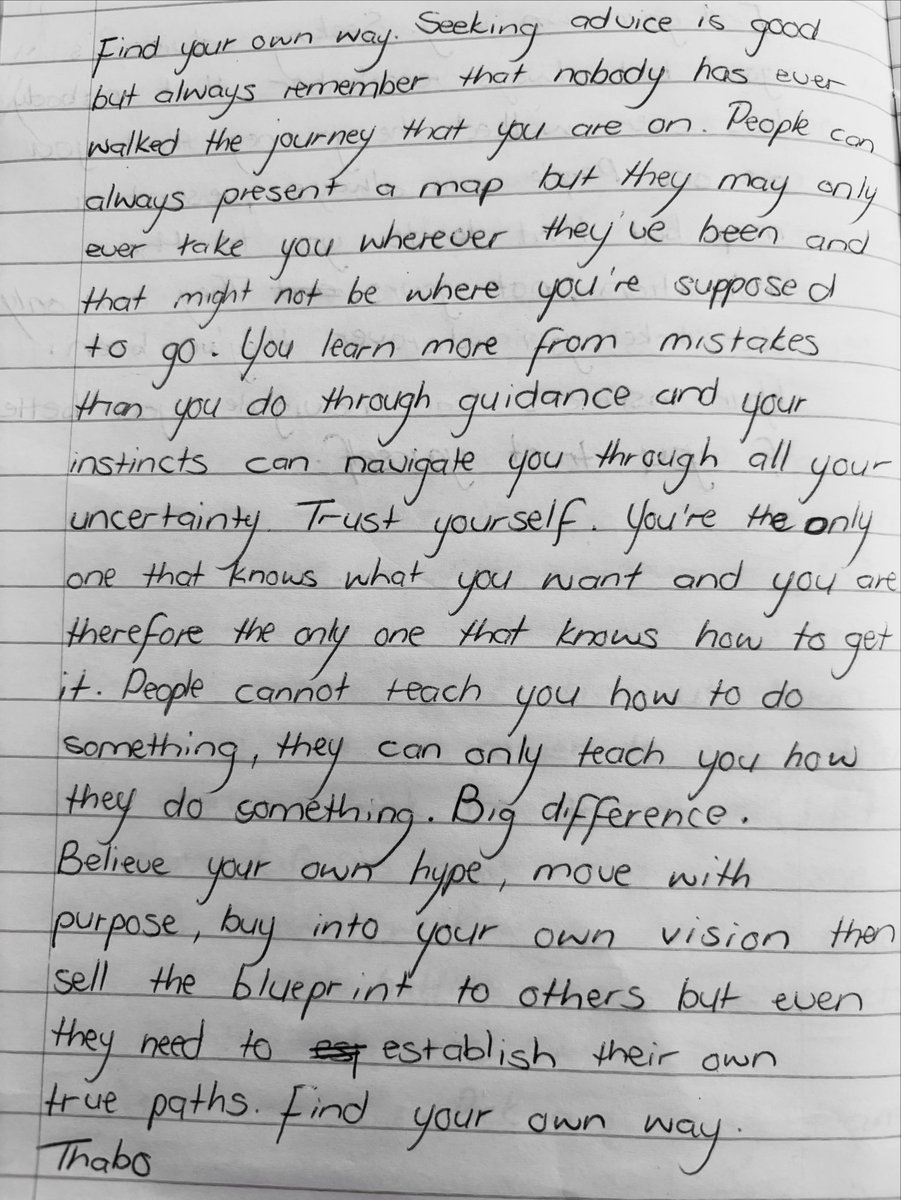 Find your own way. Seeking advice is good
but always remember that nobody has ever
walked the journey that you are on. People can
always present a map but they may only
ever take you wherever they've been and
that might not be where you're supposed
to go. You learn more from mistakes
than you do through guidance and your
instincts can navigate you through all your
uncertainty. Trust yourself. You're the only
one that knows what you want and you are
therefore the only one that knows how to get
it. People cannot teach you how to do
something, they can only teach you how
they do something. Big difference.
Believe your own hype, move with
purpose, buy into your own vision then
sell the blueprint to others but even
they need to est establish their own
true paths. Find your own way.
Thabo